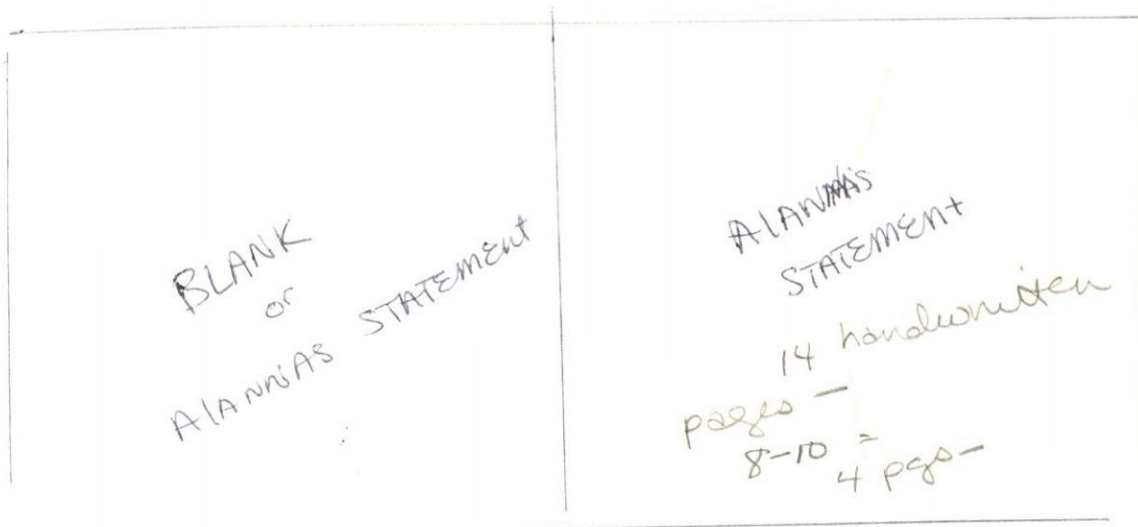 BLANK
or
AlANNAS STATEMENT
AlANNAS
STATEMENT
14 handwritten
pages —
8-10 =
4 pgs —